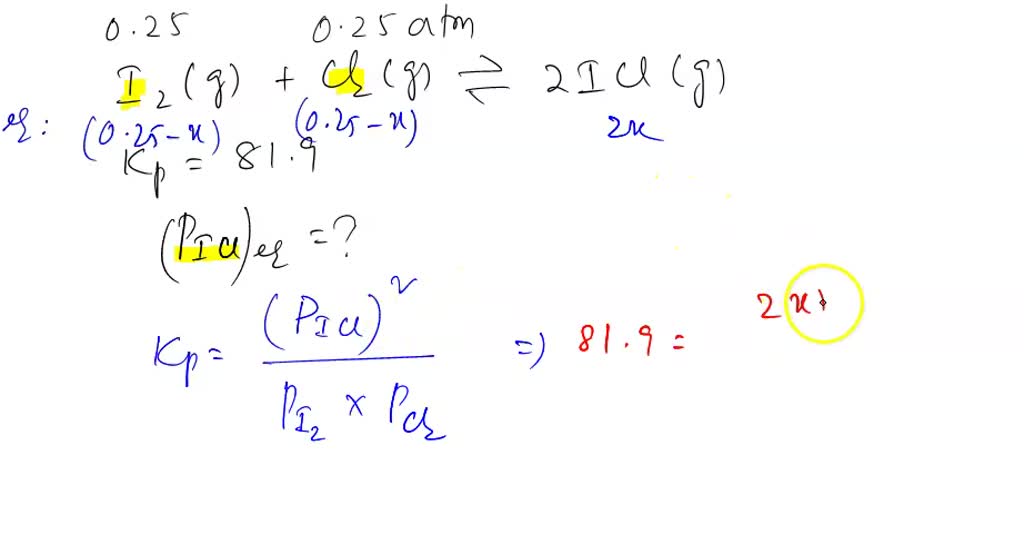 0.25 0.25 atm
I₂ (g) + Cl₂ (g) ⇌ 2ICl (g)
eq: (0.25-x) (0.25-x) 2x
Kp = 81.9
(P_ICl)eq = ?
Kp = (P_ICl)² / P_I₂ × P_Cl₂ => 81.9 = 2x